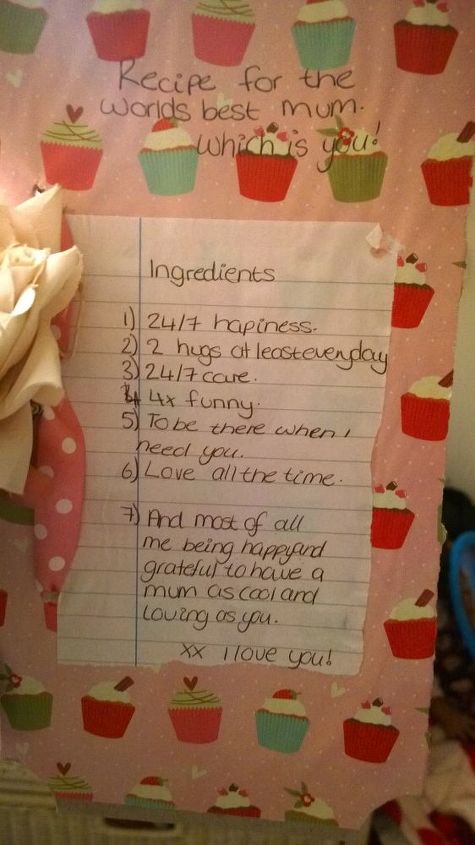 Recipe for the
worlds best mum.
which is you!
Ingredients
1) 24/7 hapiness.
2) 2 hugs at least everyday
3) 24/7 care.
4 4x funny.
5) To be there when I
need you.
6) Love all the time.
7) And most of all
me being happy and
grateful to have a
mum as cool and
loving as you.
xx I love you!